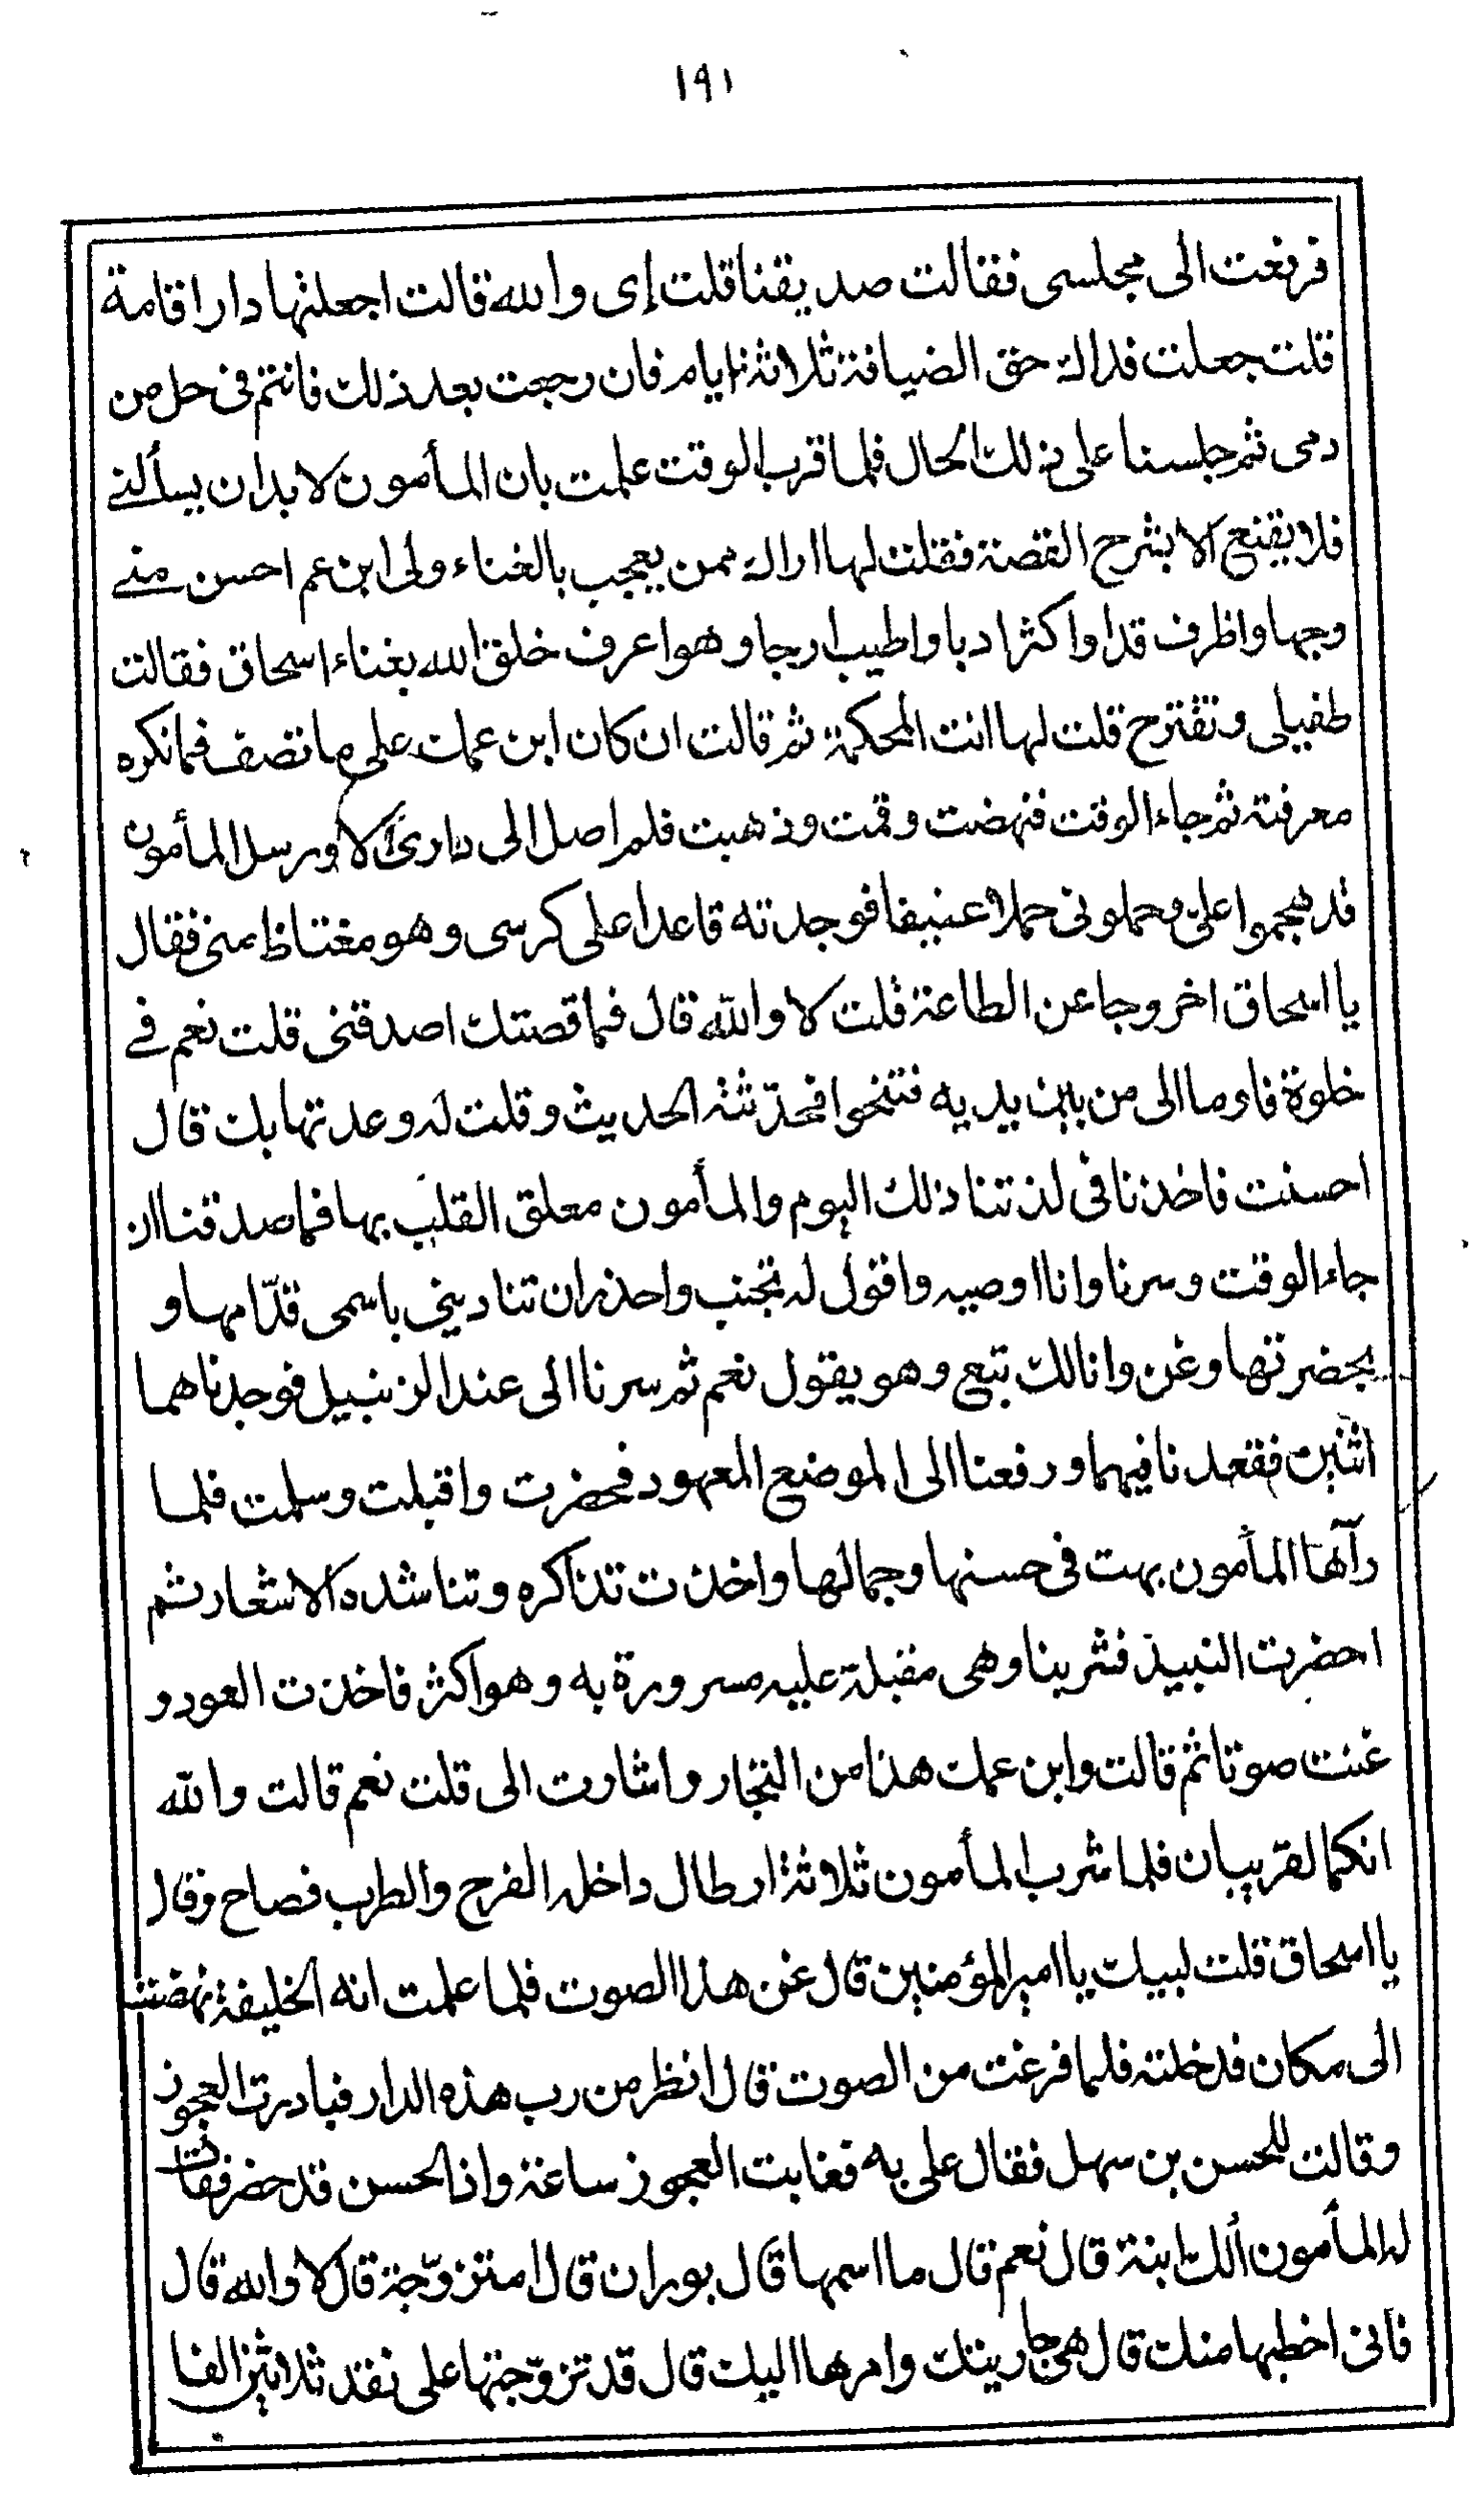 ١٩١
فرنغت الى مجلسى فقالت صديقنا قلت إى والله قالت اجعلنها دار اقامة
قلت جعلت فداك حق الضيافة ثلاثة ايام فان رجعت بعد ذلك فانتم فى حل من
دمى ثم جلسنا على ذلك الحال فلما قرب الوقت علمت بان المأمون لا بد ان يسألنے
فلا يقنع الا بشرح القصة فقلت لها اراك ممن يعجب بالغناء ولى ابن عم احسن منے
وجها واظرف قدا واكثر ادبا واطيب ارجا وهو اعرف خلق الله بغناء اسحاق فقالت
طفيلى وتقترح قلت لها انت المحكمة ثم قالت ان كان ابن عمك على ما تصف فما نكره
معرفته ثم جاء الوقت فنهضت وقمت وذهبت فلم اصل الى دارى الا ورسل المأمون
قد هجموا على وحملونى حملا عنيفا فوجدته قاعدا على كرسى وهو مغتاظ منى فقال
يا اسحاق اخروجا عن الطاعة قلت لا والله قال فما قصتك اصدقنى قلت نعم فے
خلوة فاوما الى من بين يديه فتنحوا فحدثته الحديث وقلت له وعدتها بك قال
احسنت فاخذنا فى لذتنا ذلك اليوم والمأمون معلق القلب بها فما صدقنا ان
جاء الوقت وسرنا وانا اوصيه واقول له تجنب واحذر ان تنادينى باسمى قدّامها و
بحضرتها وغن وانا لك تبع وهو يقول نعم ثم سرنا الى عند الزنبيل فوجدناهما
اثنين فقعدنا فيهما ورفعنا الى الموضع المعهود فحضرت واقبلت وسلمت فلما
رآها المأمون بهت فى حسنها وجمالها واخذت تذاكره وتناشده الاشعار ثم
احضرت النبيذ فشربنا وهى مقبلة عليه مسرورة به وهو اكثر فاخذت العود و
غنت صوتا ثم قالت وابن عمك هذا من التجار واشارت الى قلت نعم قالت والله
انكما لقريبان فلما شرب المأمون ثلاثة ارطال داخله الفرح والطرب فصاح وقال
يا اسحاق قلت لبيك يا امير المؤمنين قال غن هذا الصوت فلما علمت انه الخليفة نهضت
الى مكان فدخلته فلما فرغت من الصوت قال انظر من رب هذه الدار فبادرت العجوز
وقالت للحسن بن سهل فقال على به فغابت العجوز ساعة واذا الحسن قد حضر فقال
له المأمون ألك ابنة قال نعم قال ما اسمها قال بوران قال امتزوّجة قال لا والله قال
فانى اخطبها منك قال هى جاريتك وامرها اليك قال قد تزوّجتها على نقد ثلاثين الفا